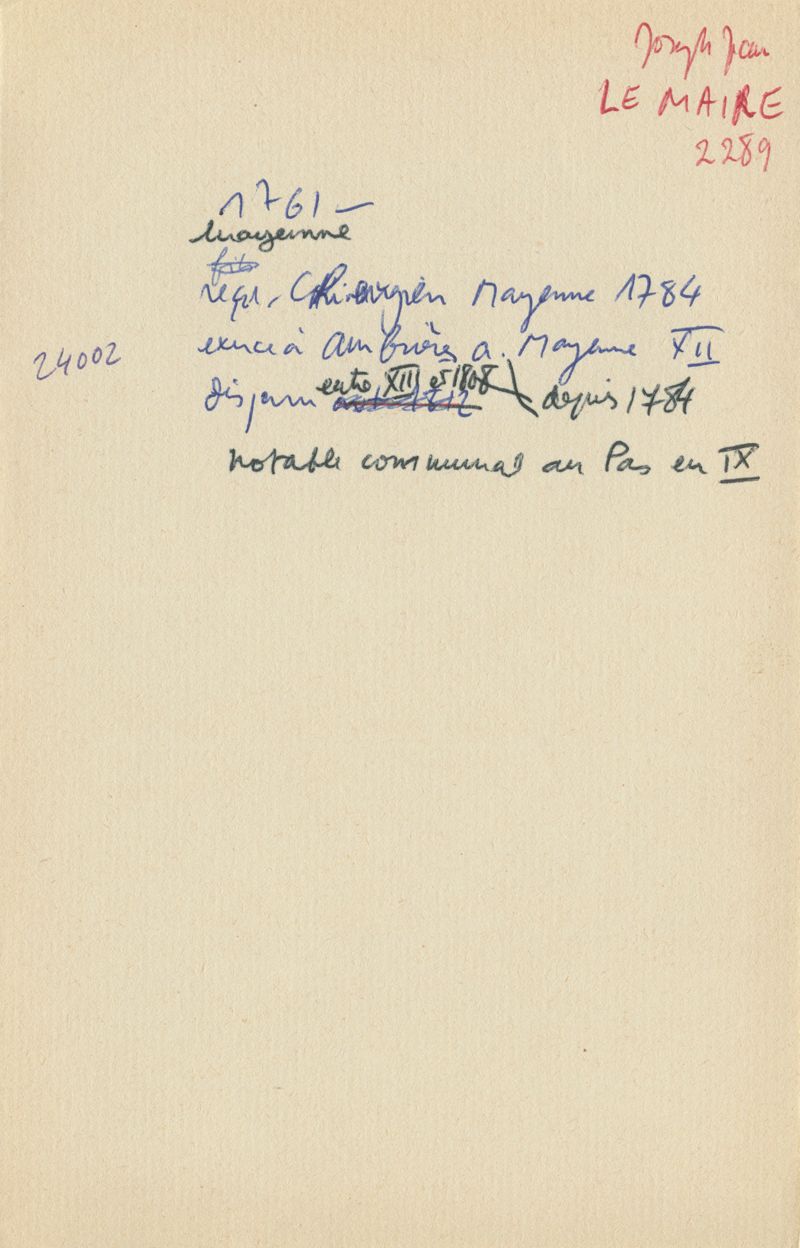 Joseph Jean
LE MAIRE
2289
1761 –
Mayenne
reçu Chirurgien Mayenne 1784
24002
exerce à Ambrières a. Mayenne XII
disparu entre XII et 1808 depuis 1784
notable communal au Pas en IX